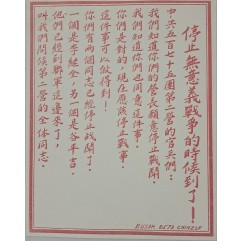 停止無意義戰爭的時候到了！
中共五百七十五團第二營的官兵們：
我們知道你們的營長願意停止戰鬪
我們知道你們也同意這件事．
你們是對的！現在應該停止戰事．
這件事可以做得到！
你們有兩個同志已經停止战鬪了．
一個是李經全，另一個是谷平吉．
他們已經到聯軍這邊來了，
叫我們問候第二營的全体同志．